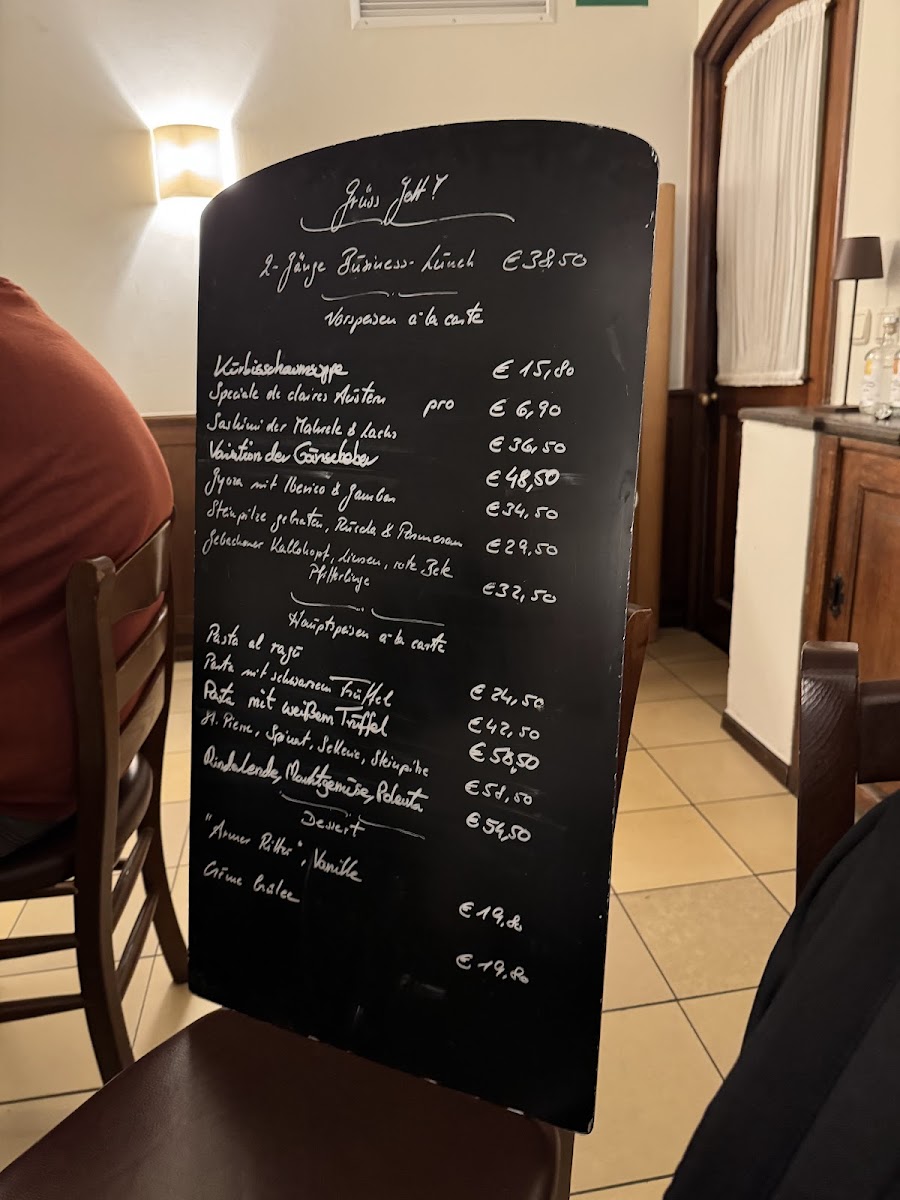 Grüss Gott!
2-Gänge Business-Lunch €38,50
Vorspeisen a la carte
Kürbisschaumsuppe €15,80
Speciale de claires Austern pro €6,90
Sashimi der Makrele & Lachs €36,50
Variation der Gänseleber €48,50
Gyoza mit Iberico & Gamben €34,50
Steinpilze gebraten, Rucola & Parmesan €29,50
Gebackener Kalbskopf, Linsen, rote Bete
Pfifferlinge €32,50
Hauptspeisen a la carte
Pasta al ragu €24,50
Pasta mit schwarzem Trüffel €42,50
Pasta mit weißem Trüffel €58,50
St. Pierre, Spinat, Sellerie, Steinpilze €51,50
Rinderlende, Marktgemüse, Polenta €54,50
Dessert
"Armer Ritter", Vanille €19,80
Crème brûlée €19,80